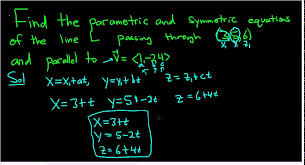 Find the parametric and symmetric equations
of the line L passing through (3,5,6)
x₁ y₁ z₁
and parallel to v = <1,-2,4>
a b c
Sol X=X₁+at, y=y₁+bt z=z₁+ct
X=3+t y=5+-2t z=6+4t
X=3+t
y=5-2t
z=6+4t